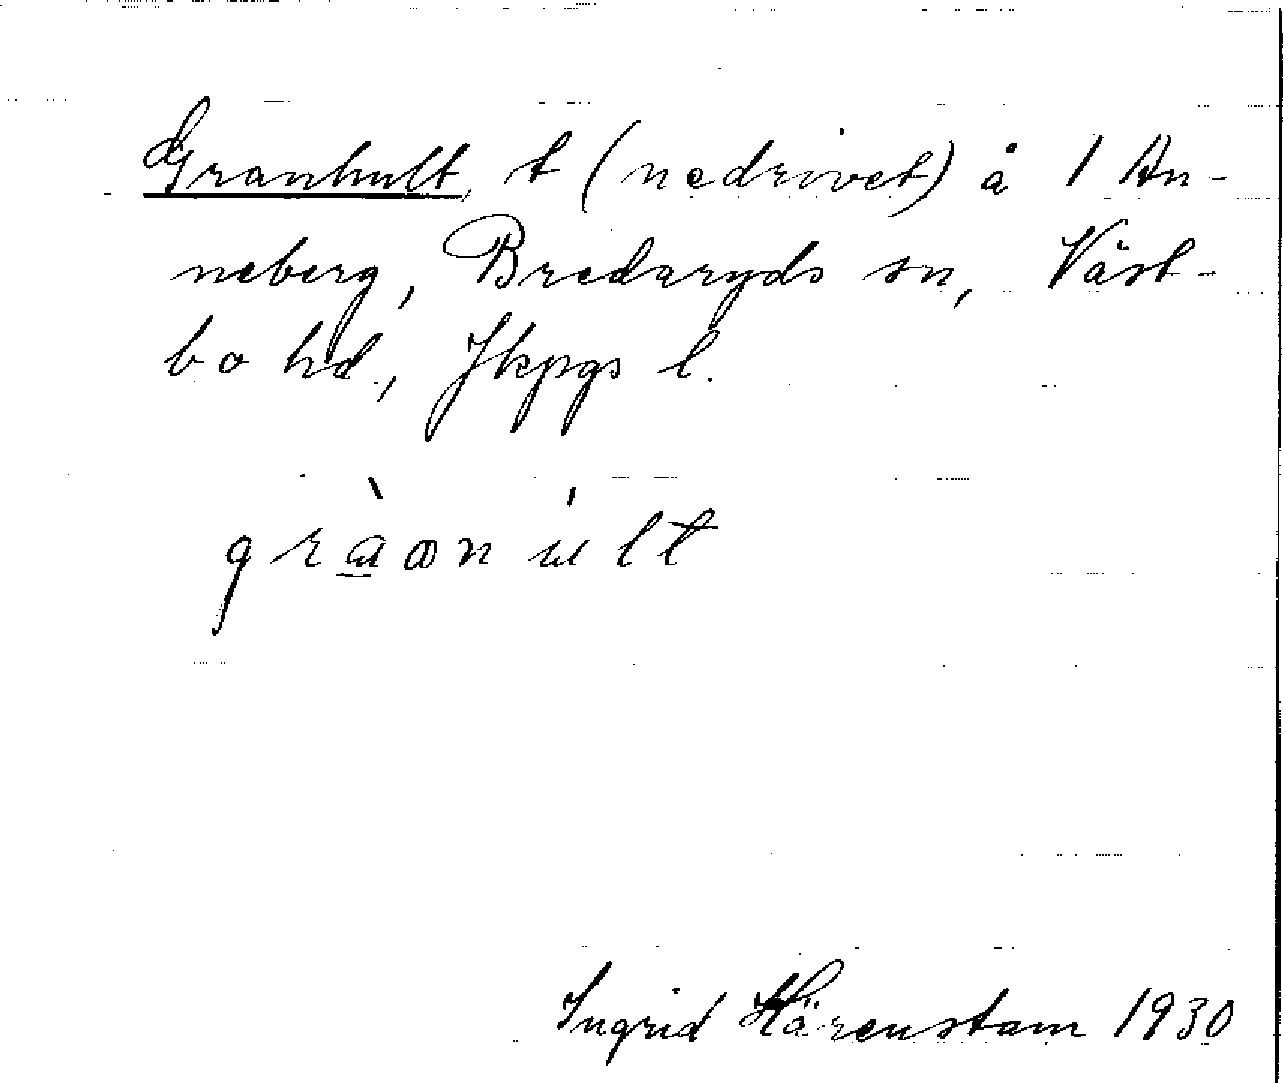 Granhult, t (nedrivet) å 1 An-
neberg, Bredaryds sn, Väst-
bo hd., Jkpgs l.
Ingrid Härenstam 1930